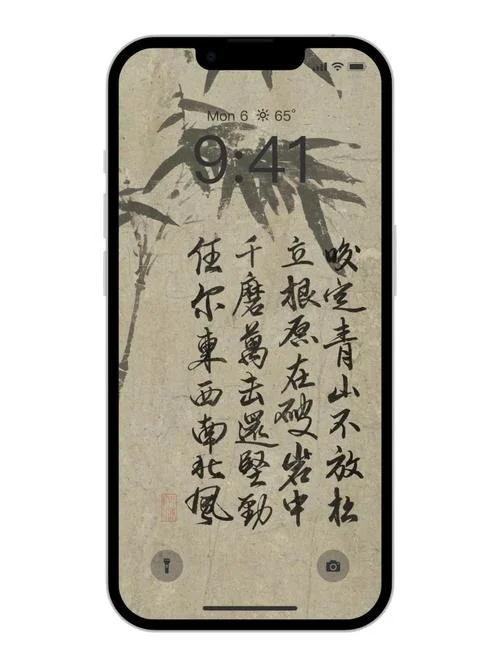 Mon 6 65°
9:41
咬定青山不放松
立根原在破岩中
千磨萬击還堅勁
任尔東西南北風